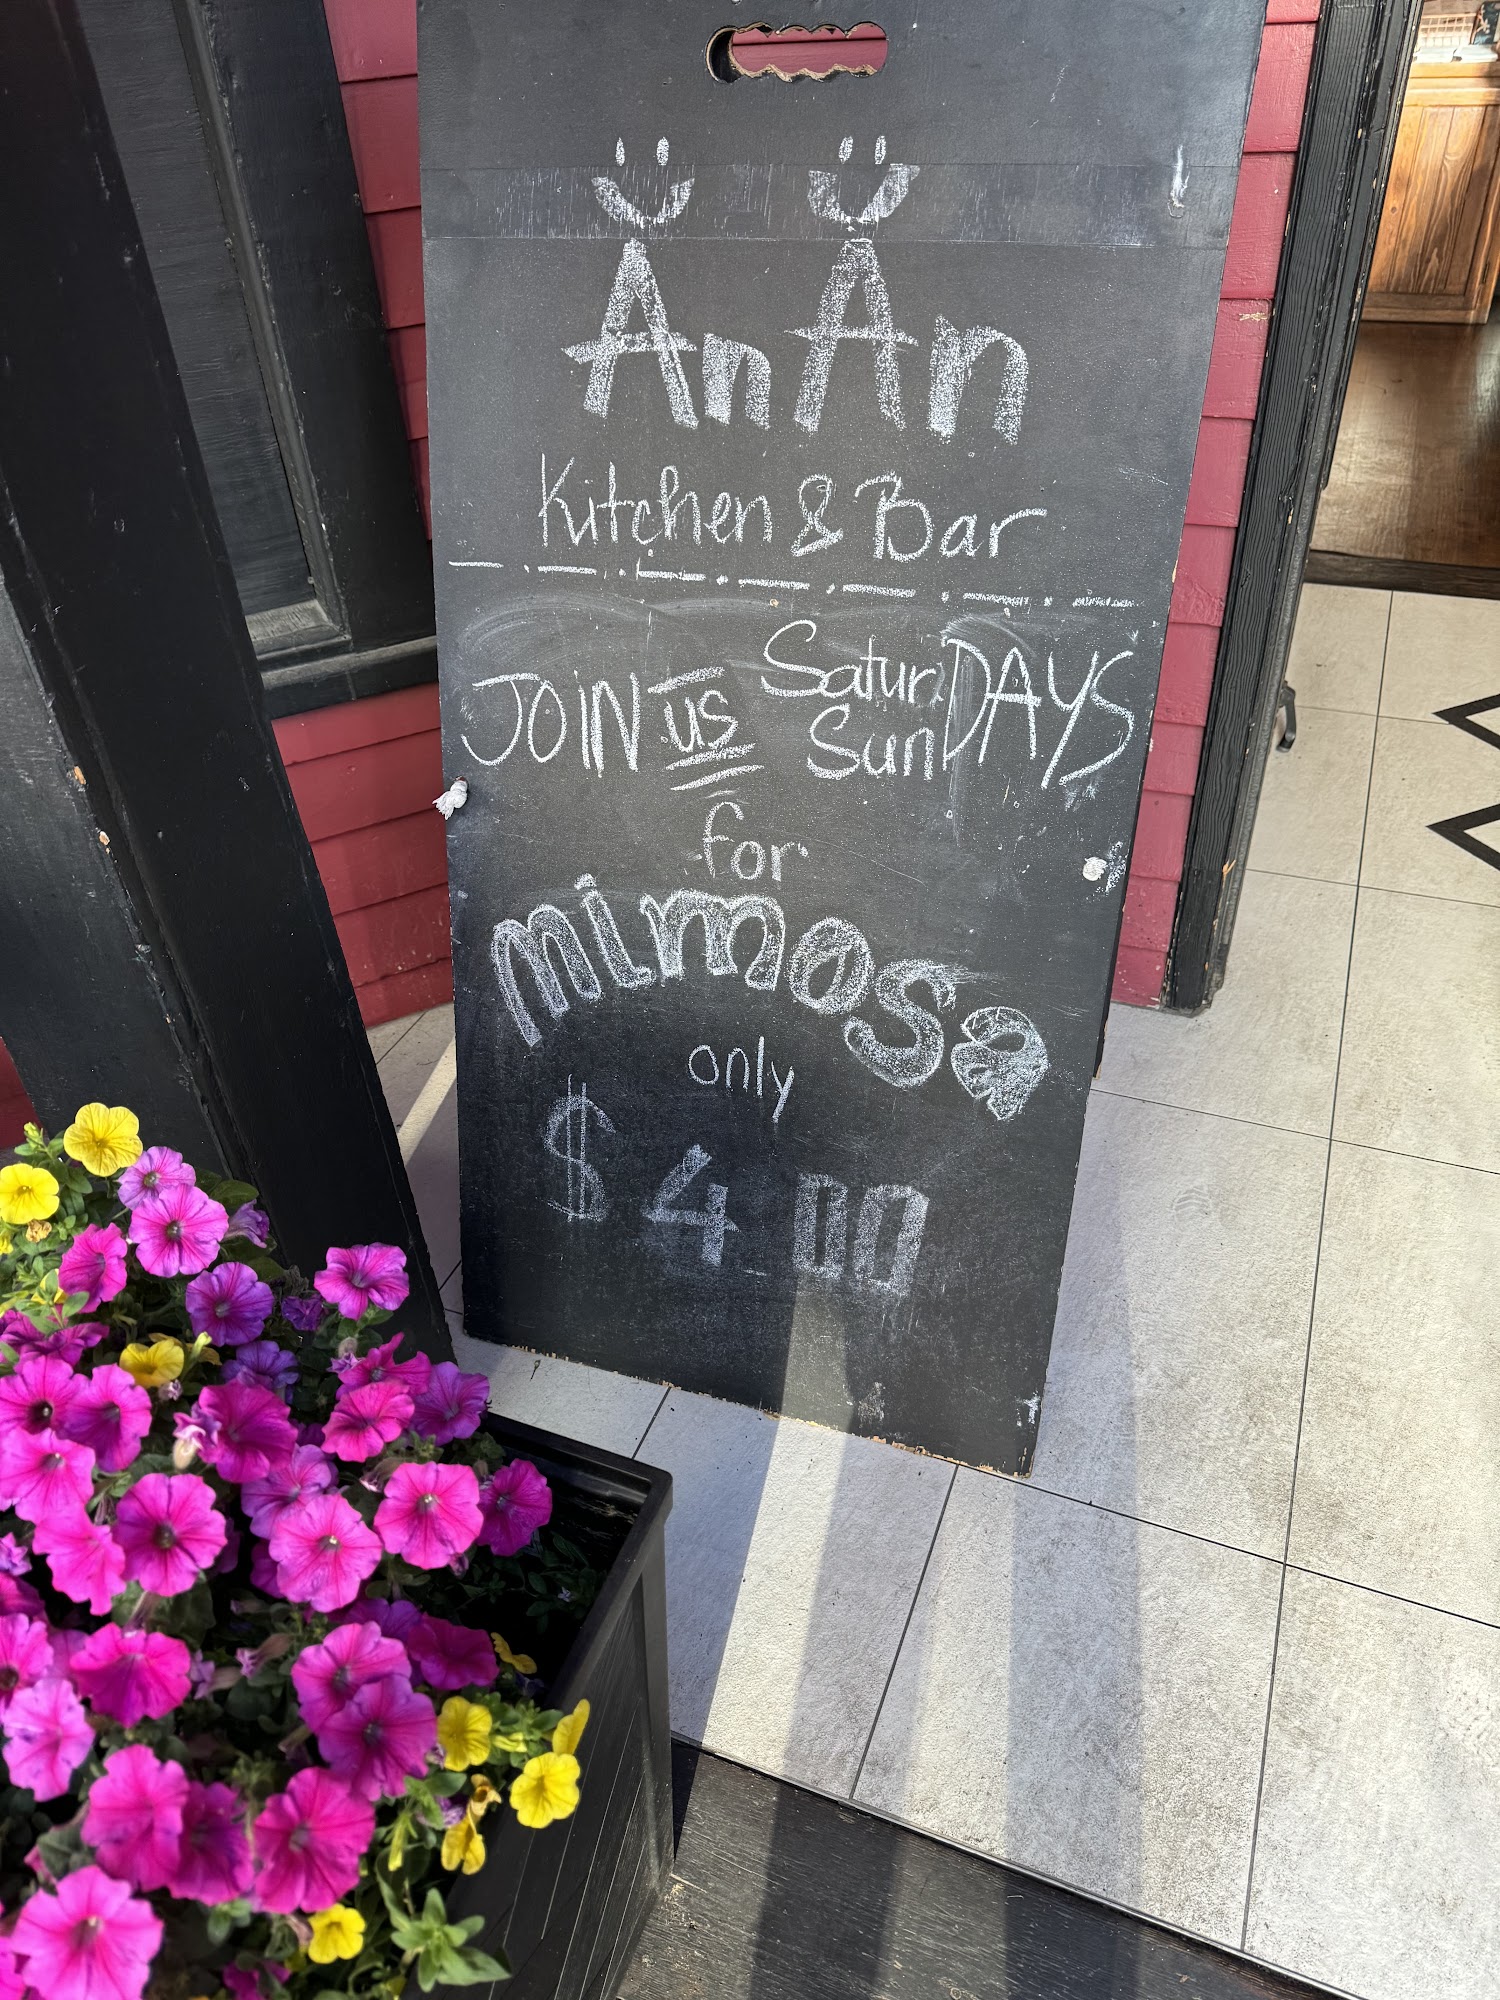 An An
Kitchen & Bar
JOiN us SaturDAYS
SunDAYS
for
mimosa
only
$4.00